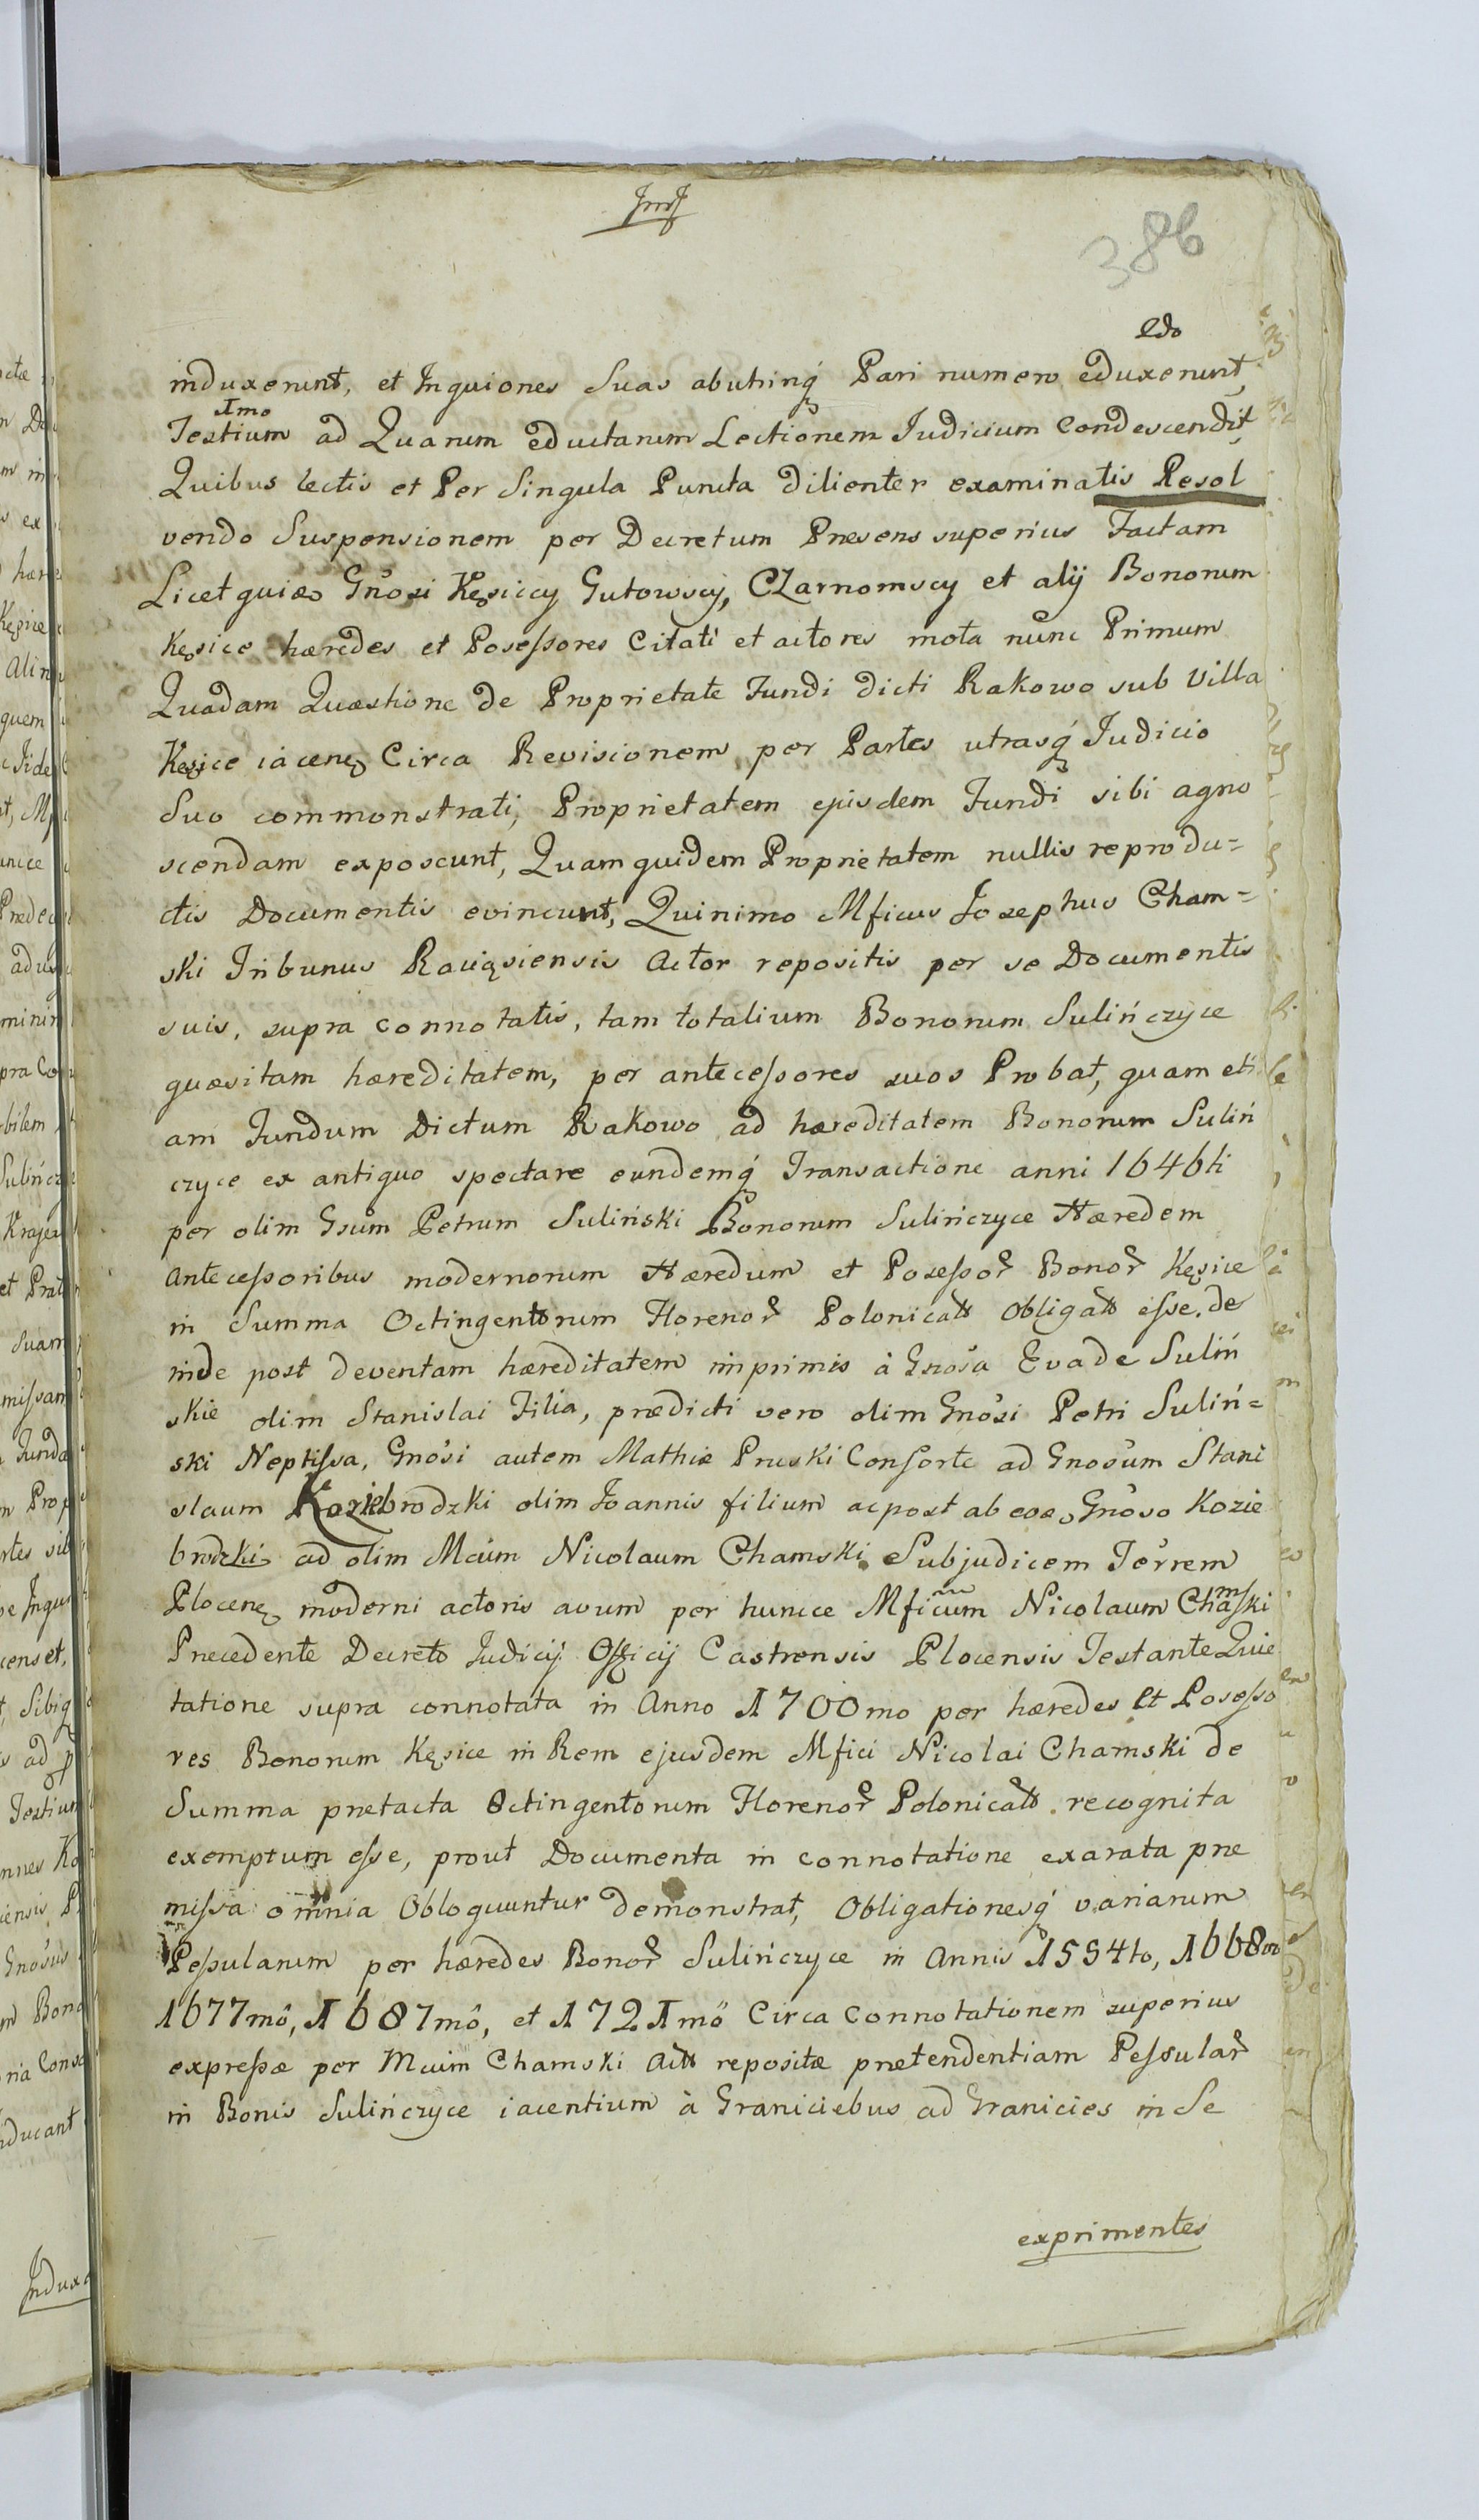 386
2do
induxerunt, et Inquiones Suas abutrinq́ Pari numero eduxerunt,
1mo
Testium ad Quarum eductarum Lectionem Iudicium Condescendit,
Quibus lectis et Per Singula Puncta dilienter examinatis Resol
vendo Suspensionem per Decretum Presens superius Factam
Licet quiæ Gnosi Kęsiccy Gutowscy, CZarnomscy et alij Bonorum
Kęsice hæredes et Poseſsores Citati et actores mota nunc Primum
Quadam Quæstione de Proprietate Fundi dicti Rakowo sub Villa
Kęsice iacenȩ Circa Revisionem per Partes utrasq́ Iudicio
Suo commonstrati, Proprietatem ejusdem Fundi sibi agno
scendam exposcunt, Quam quidem Proprietatem nullis reprodu=
ctis Documentis evincunt, Quinimo Mficus Josephus Cham=
ski Tribunus Raviąsiensis Actor repositis per se Documentis
suis, supra connotatis, tam totalium Bonorum Sulińczyce
quæsitam hæreditatem, per anteceſsores suos Probat, quam eti
am Fundum Dictum Rakowo ad hæreditatem Bonorum Suliń
czyce ex antiquo spectare eundemq́ Transactione anni 1646ti
per olim Gsum Petrum Suliński Bonorum Sulińczyce Hæredem
Anteceſsoribus modernorum Hæredum et Poseſsor Bonor Kęsice
in Summa Octingentorum Florenor Polonicall obligatt eſse. de
inde post deventam hæreditatem inprimis à Gnosa Eva de Suliń
skie olim Stanislai Filia, prædicti vero olim Gnosi Petri Suliń=
ski Neptiſsa, Gnosi autem Mathiæ Pruski Conſorte ad Gnosum Stani
slaum Koziebrodzki olim Joannis filium ac post ab eoæ Gnoso Kozie
brodzki ad olim Mcum Nicolaum Chamski Subjudicem Terrem
Plocenȩ moderni actoris avum per hunce Mficum Nicolaum Chamſki
Precedente Decreto Iudicij Officij Castrensis Plocensis Testante Quie
tatione supra connotata in Anno 1700mo per hæredes et Poseſso
res Bonorum Kęsice in Rem ejusdem Mfici Nicolai Chamski de
Summa pretacta Octingentorum Florenor Polonicall recognita
exemptum eſse, prout Documenta in connotatione exarata pre
miſsa omnia Obloquuntur demonstrat, Obligationesq́ variarum
Peſsularum per hæredes Bonor Sulińczyce in Annis 1554to, 1668vo
1677mô, 1687mô, et 1721mô Circa Connotationem superius
expreſsæ per Mcum Chamski Actt repositæ pretendentiam Peſsular
in Bonis Sulińczyce iacentium à Graniciebus ad Granicies in Se
exprimentes